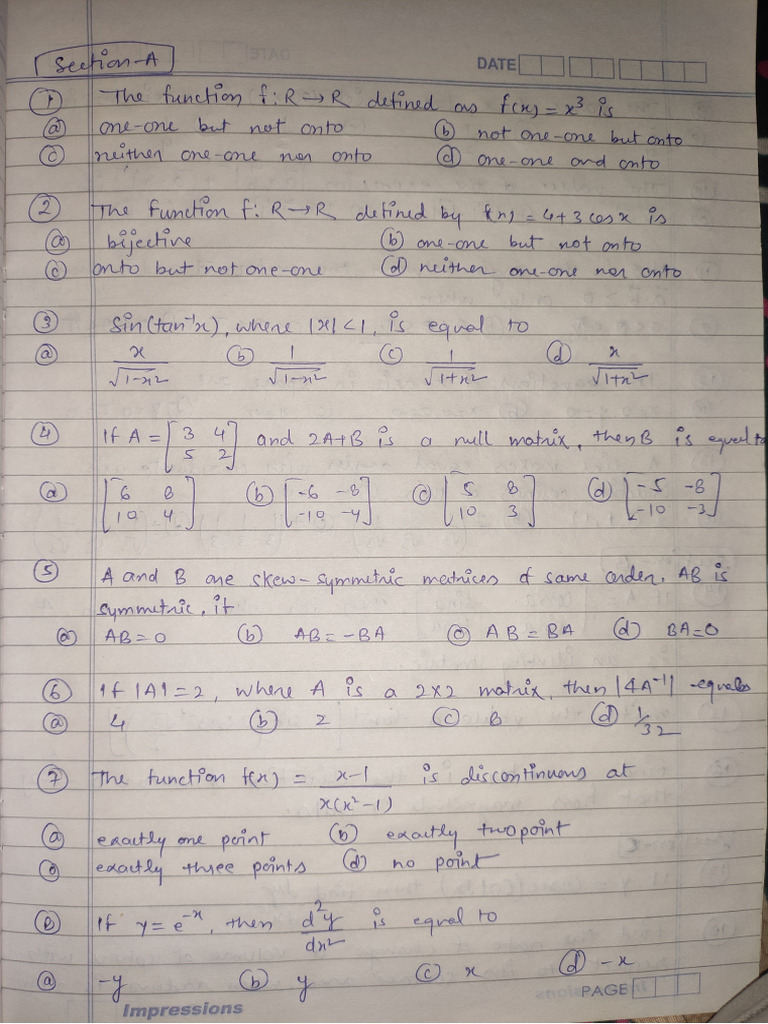 Section-A
DATE
① The function f: R→R defined as f(x) = x³ is
ⓐ one-one but not onto ⓑ not one-one but onto
ⓒ neither one-one nor onto ⓓ one-one and onto
② The function f: R→R defined by f(x) = 4+3 cos x is
ⓐ bijective ⓑ one-one but not onto
ⓒ onto but not one-one ⓓ neither one-one nor onto
③ Sin(tan⁻¹x), where |x|<1, is equal to
ⓐ x/√(1-x²) ⓑ 1/√(1-x²) ⓒ 1/√(1+x²) ⓓ x/√(1+x²)
④ If A = [3 4; 5 2] and 2A+B is a null matrix, then B is equal to
ⓐ [6 8; 10 4] ⓑ [-6 -8; -10 -4] ⓒ [5 8; 10 3] ⓓ [-5 -8; -10 -3]
⑤ A and B are skew-symmetric matrices of same order. AB is
symmetric, if
ⓐ AB=0 ⓑ AB=-BA ⓒ AB=BA ⓓ BA=0
⑥ If |A|=2, where A is a 2×2 matrix, then |4A⁻¹| equals
ⓐ 4 ⓑ 2 ⓒ 8 ⓓ 1/32
⑦ The function f(x) = (x-1)/(x(x²-1)) is discontinuous at
ⓐ exactly one point ⓑ exactly two point
ⓒ exactly three points ⓓ no point
⑧ If y = e⁻ˣ, then d²y/dx² is equal to
ⓐ -y ⓑ y ⓒ x ⓓ -x
PAGE
Impressions